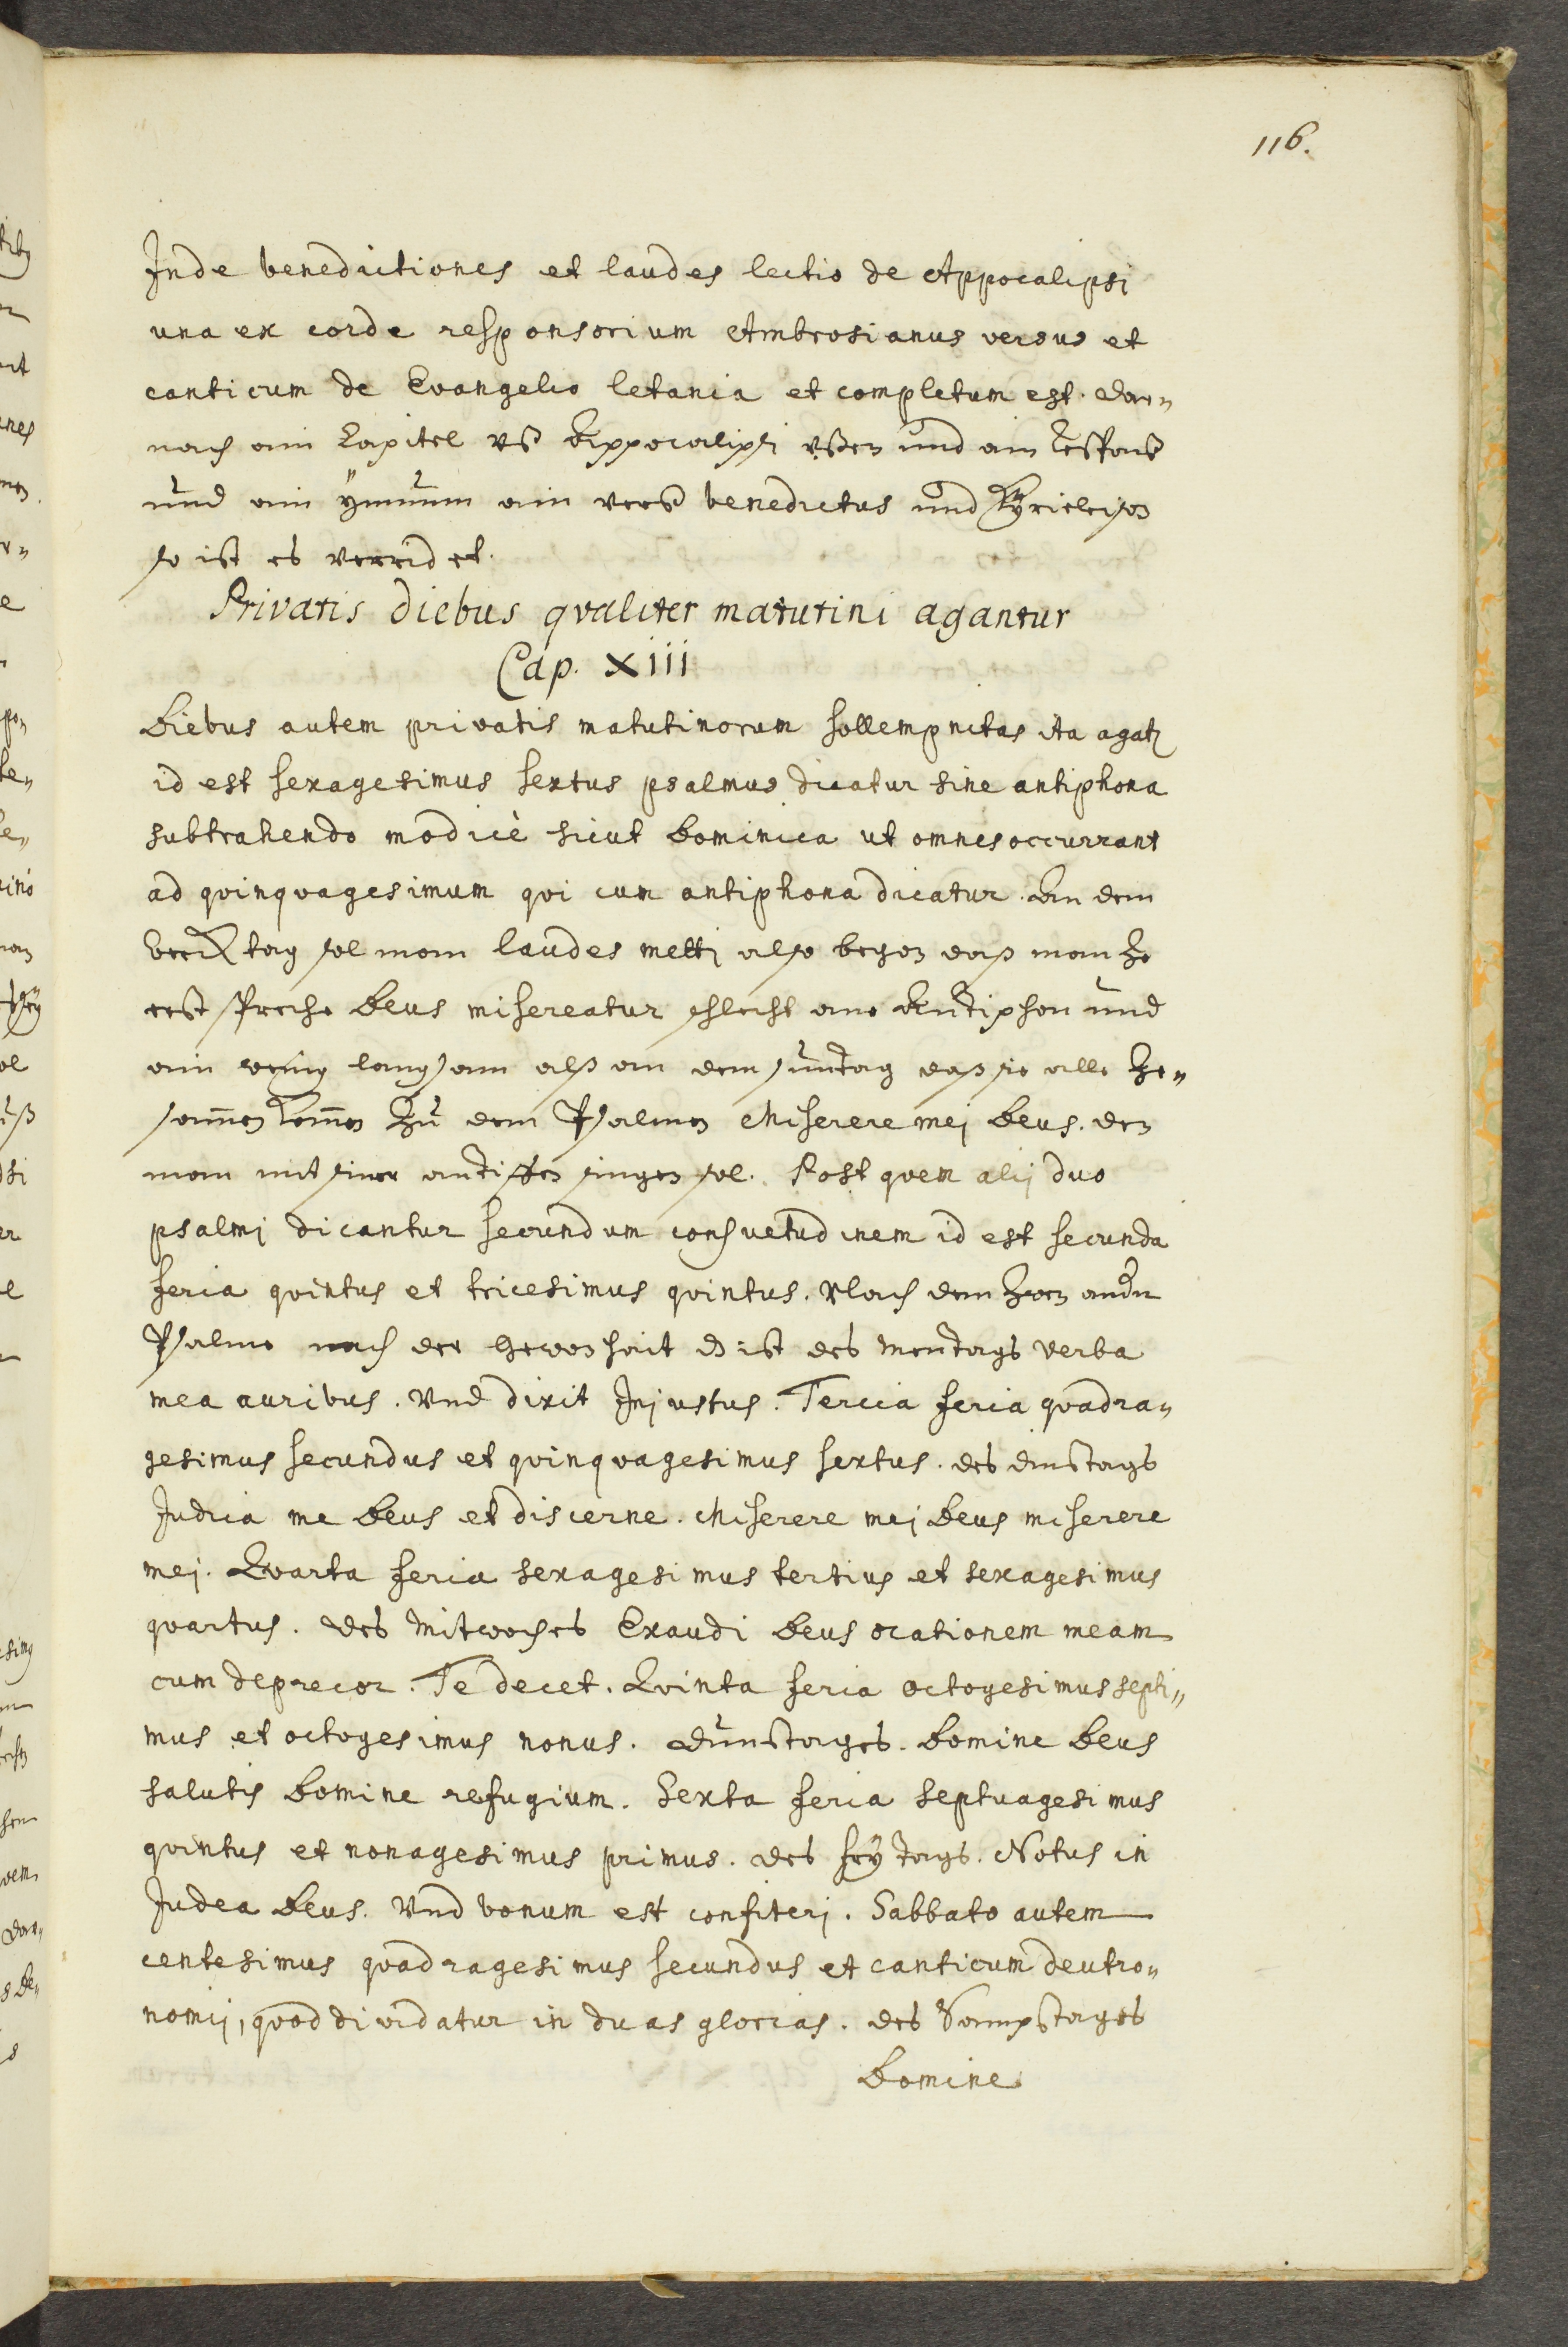 116.
Inde benedictiones et laudes lectio de Appocalipsi
una ex corde responsorium Ambrosianus versus et
canticum de Evangelio letania et completum est. Dar„
nach ain Capitel uß Appocalipsi ußen und ain Respons
und ain ÿmnum ain verß benedictus und Kÿrieleison
so ist es verendet.
Privatis diebus qvaliter matutini agantur
Cap. Xiii
Diebus autem privatis matutinorum sollempnitas ita agatr
id est sexagesimus sextus psalmus dicatur sine antiphona
subtrahendo modicè sicut Dominica ut omnes occurrant
ad qvinqvagesimum qvi cum antiphona dicatur. An dem
werck tag sol man laudes metti also began das man ze
erst spreche Deus misereatur schlecht ane Antiphon und
ain wenig langsam alß an dem suntag daß sie alle ze„
samen komen zu dem Psalmen Miserere mej Deus. den
man mit siner antiffen singen sol. Post qvem alij duo
psalmj dicantur secundum consuetudinem id est secunda
feria qvintus et tricesimus qvintus. Nach dem zwen andn
Psalme nach der Gewonhait dz ist des mentags Verba
mea auribus. Und dixit Injustus. Tercia feria qvadra„
gesimus secundus et qvinqvagesimus sextus. des dinstags
Judica me Deus et discerne. Miserere mej Deus miserere
mej. Qvarta feria sexagesimus tertius et sexagesimus
qvartus. des Mitwoches Exaudi Deus orationem meam
cum deprecor. Te decet. Qvinta feria octogesimus septi„
mus et octogesimus nonus. Dunstages. Domine Deus
salutis Domine refugium. Sexta feria septuagesimus
qvintus et nonagesimus primus. des frÿtags. Notus in
Judea Deus. Und bonum est confiterj. Sabbato autem
centesimus qvadragesimus secundus et canticum deutro„
nomij, qvod dividatur in duas glorias. des Sampstages
Domine